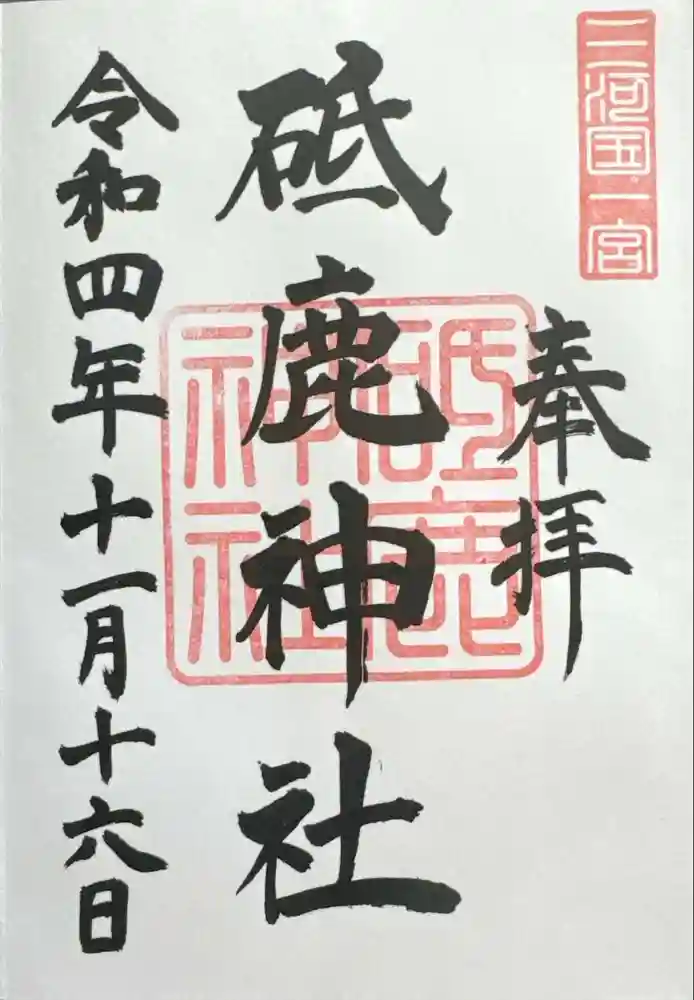 三河国一宮
奉拝
砥鹿神社
砥鹿
神社
令和四年十一月十六日